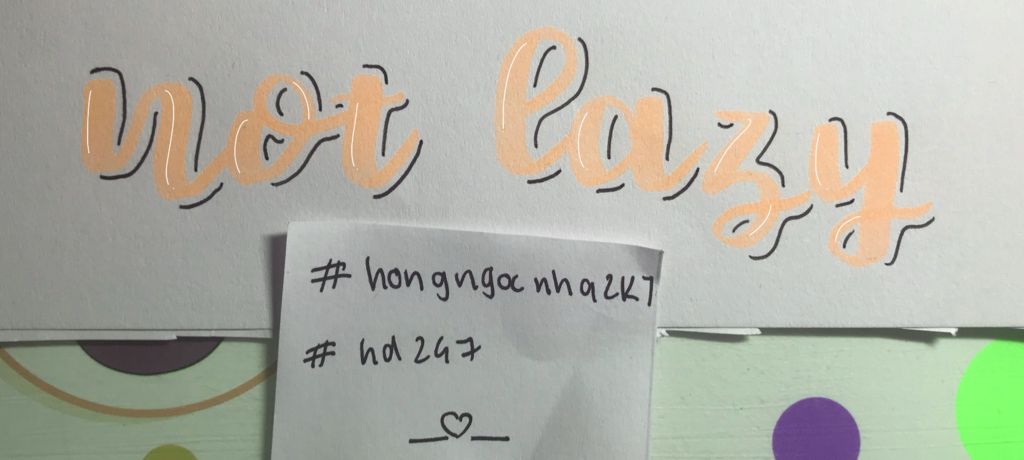 not lazy
#hongngocnha2K7
#hd247